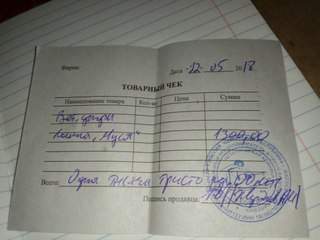 Фирма Дата 12 05 2018
ТОВАРНЫЙ ЧЕК
Наименование товара Кол-во Цена Сумма
Вет. услуги
кошка „Муся" 1300,00
Всего: Одна тысяча триста руб. 00 коп
Подпись продавца